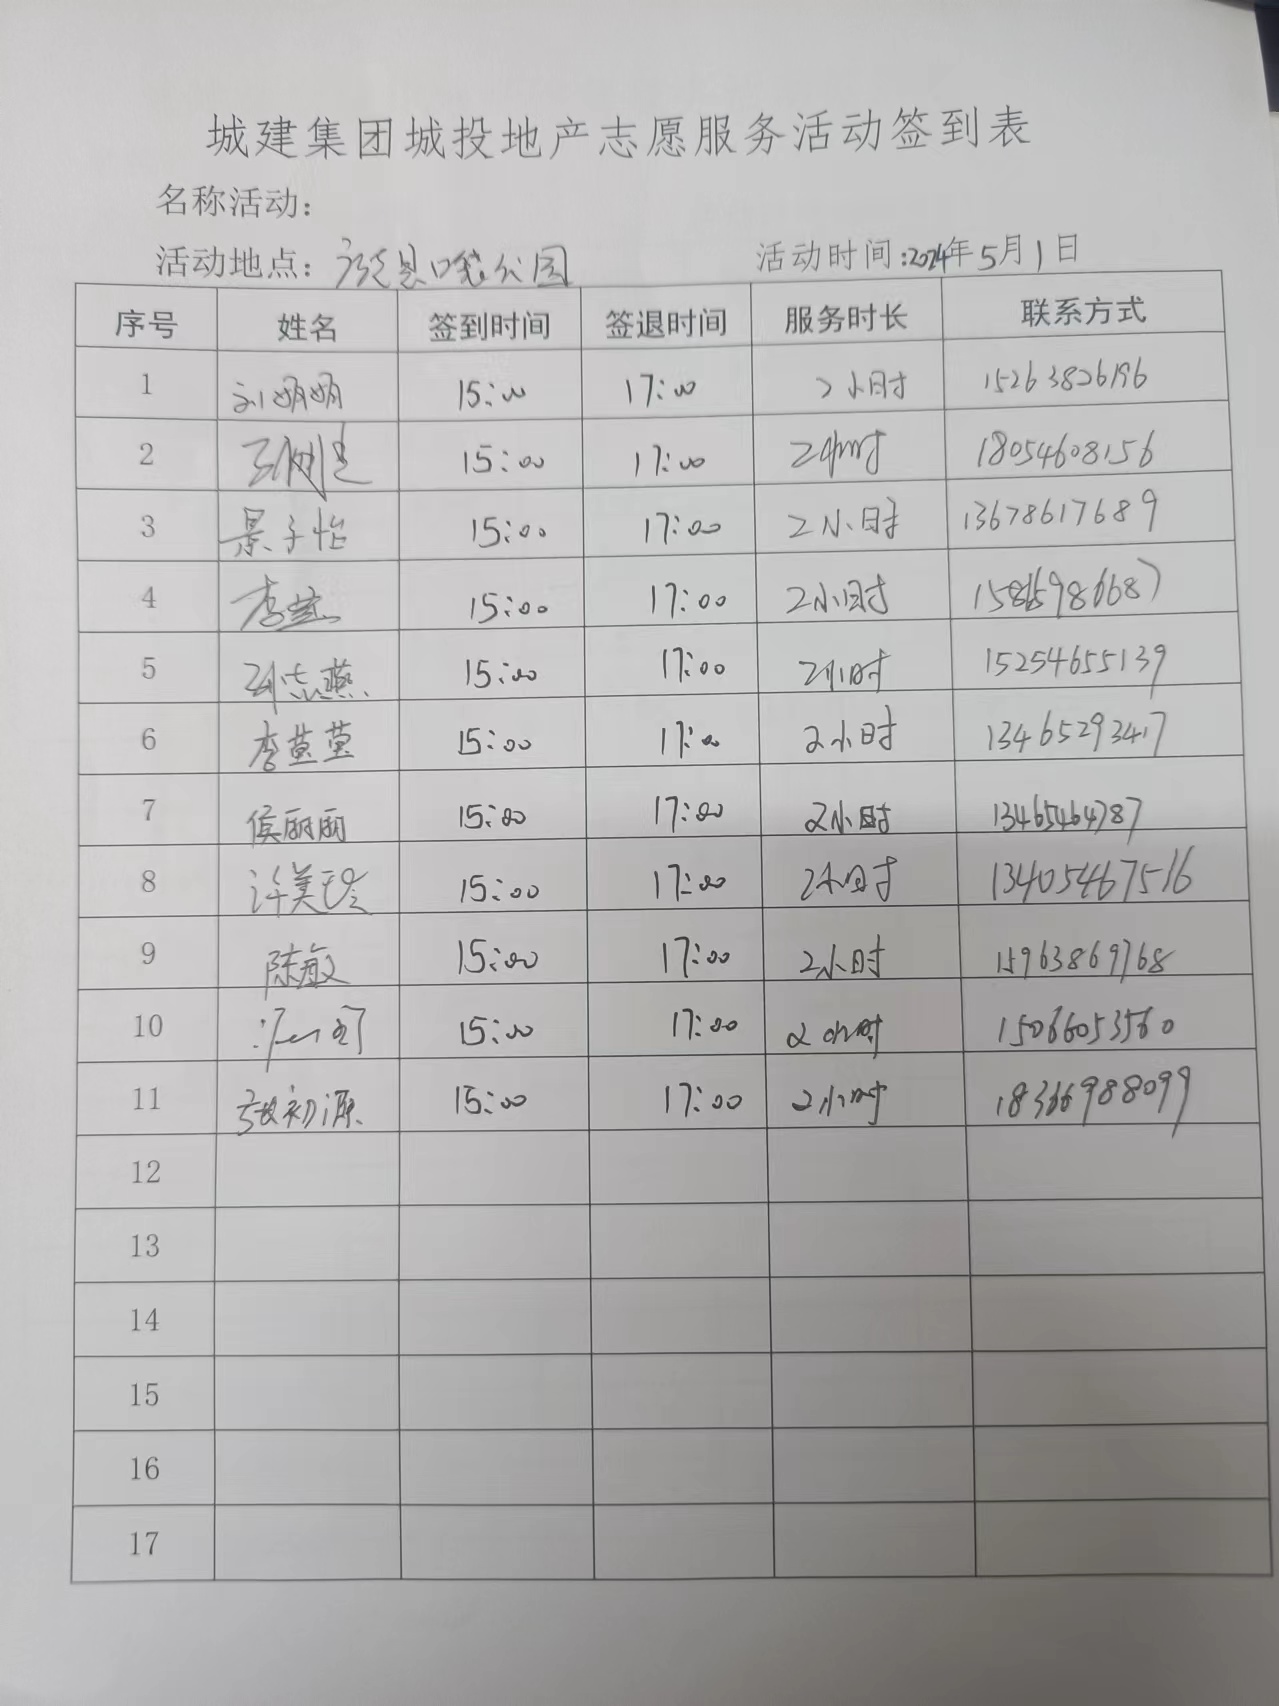 城建集团城投地产志愿服务活动签到表
名称活动：
活动地点：广饶县口袋公园 活动时间：2024年5月1日
序号 姓名 签到时间 签退时间 服务时长 联系方式
1 刘娟娟 15:00 17:00 2小时 15263826196
2 15:00 17:00 2小时 18054608156
3 景子怡 15:00 17:00 2小时 13678617689
4 李 15:00 17:00 2小时
5 志燕 15:00 17:00 2小时 15254655139
6 李黄黄 15:00 17:00 2小时 13465293417
7 侯丽丽 15:00 17:00 2小时 13465464787
8 许美玲 15:00 17:00 2小时 13405467516
9 陈敏 15:00 17:00 2小时 15963869768
10 15:00 17:00 2小时 15066053560
11 初源 15:00 17:00 2小时 18366988099
12
13
14
15
16
17